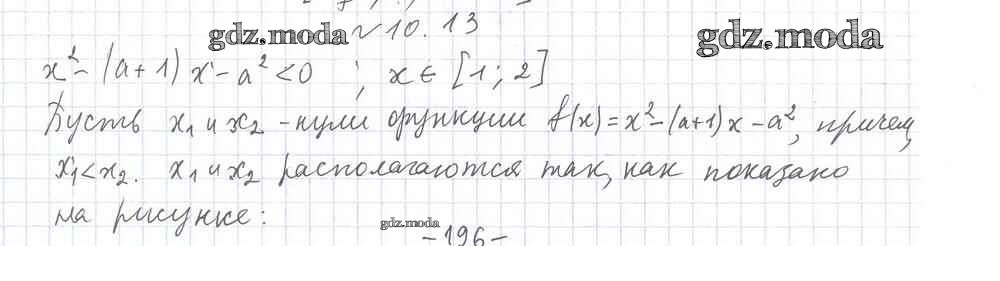 gdz.moda № 10.13 gdz.moda
x² - (a+1) x - a² < 0 ; x ∈ [1; 2]
Пусть x₁ и x₂ - нули функции f(x) = x² - (a+1)x - a², причем,
x₁ < x₂. x₁ и x₂ располагаются так, как показано
на рисунке:
gdz.moda
- 196 -